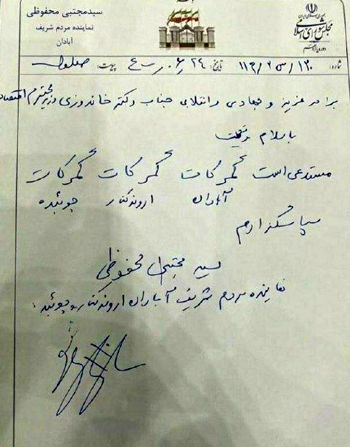 سیدمجتبی محفوظی
نماینده مردم شریف
آبادان
مجلس شورای اسلامی
شماره: ۱۱۳/۲/س/۱۲۰ تاریخ: ۲۴/۰۶/ پیوست:
برادر عزیز و جهادی و انقلابی جناب دکتر خاندوزی وزیر محترم اقتصاد
با سلام و تحیت
مستدعی است گمرکات گمرکات گمرکات
آبادان اروندکنار چوئبده
سپاسگزارم
سید مجتبی محفوظی
نماینده مردم شریف آبادان اروندکنار و چوئبده